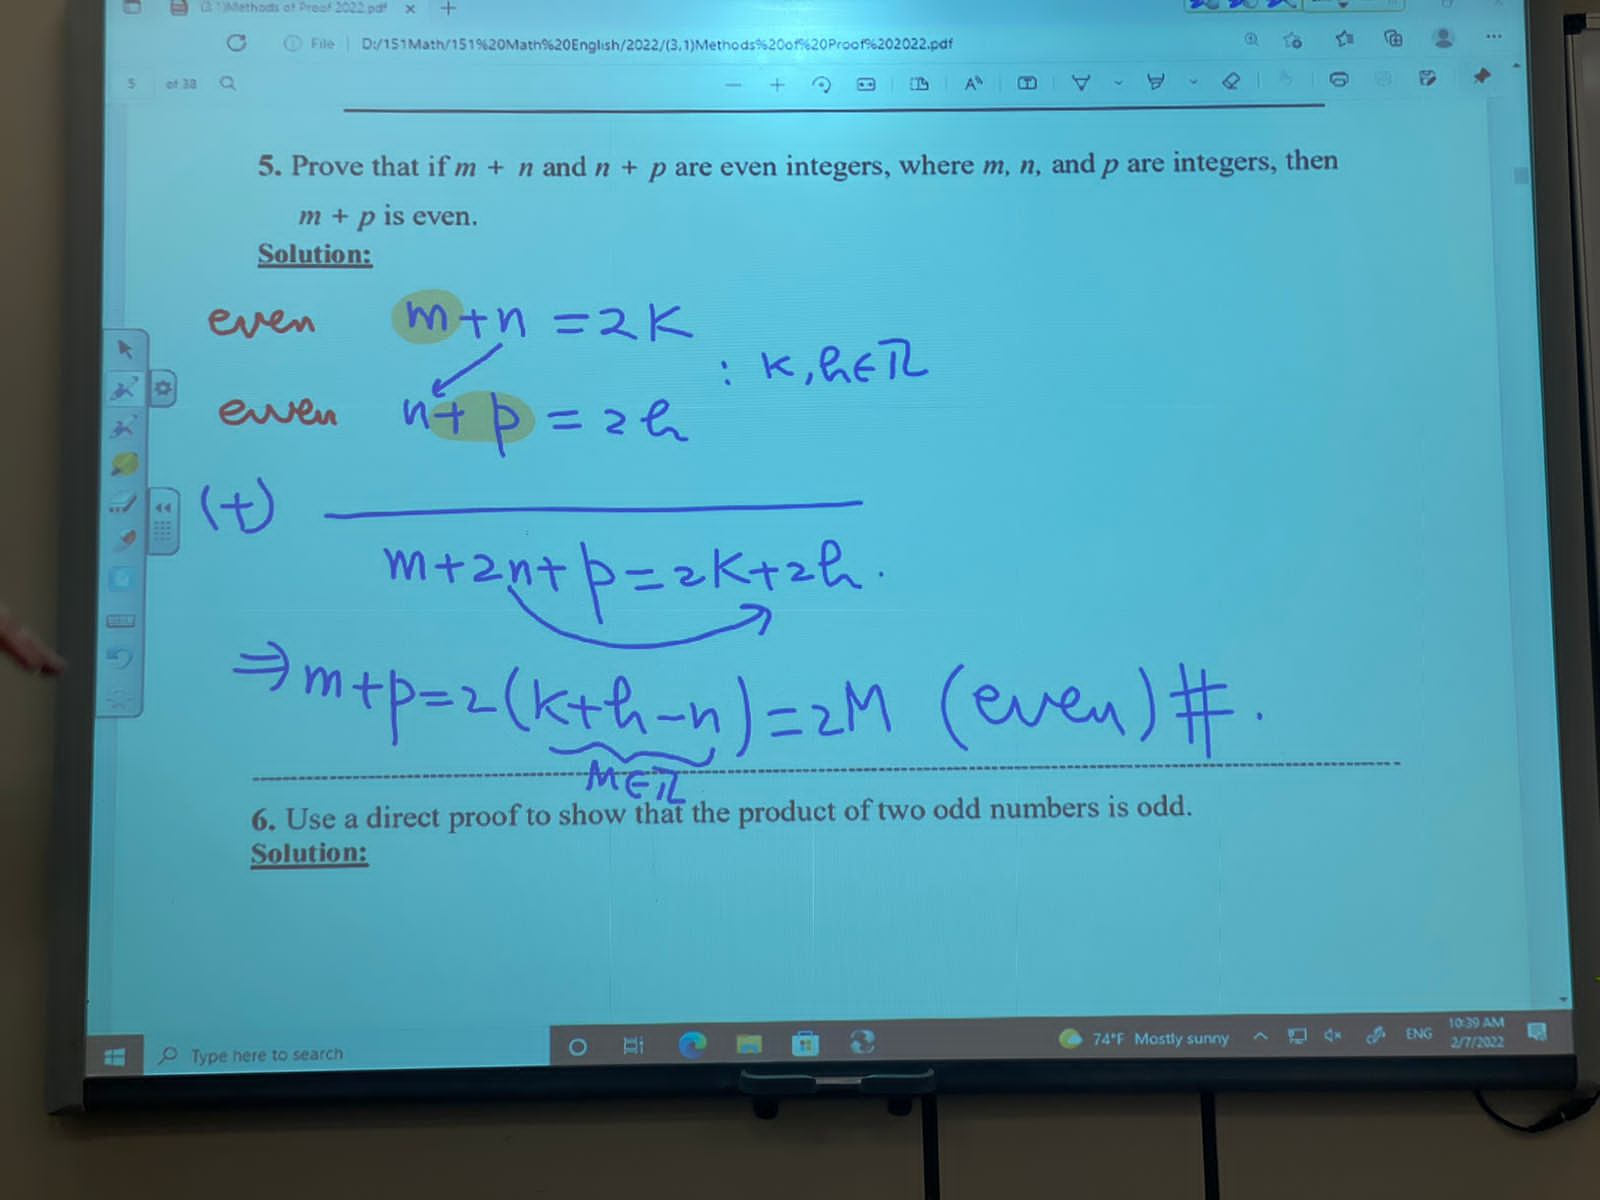 (3,1)Methods of Proof 2022.pdf
File | D:/151Math/151%20Math%20English/2022/(3,1)Methods%20of%20Proof%202022.pdf
5 of 38
5. Prove that if m + n and n + p are even integers, where m, n, and p are integers, then
m + p is even.
Solution:
even m+n = 2K
: K, h∈ℤ
even n+p = 2h
(+)
m+2n+p=2K+2h.
⇒ m+p=2(k+h-n)=2M (even) #.
M∈ℤ
6. Use a direct proof to show that the product of two odd numbers is odd.
Solution:
Type here to search
74°F Mostly sunny
ENG
10:39 AM
2/7/2022